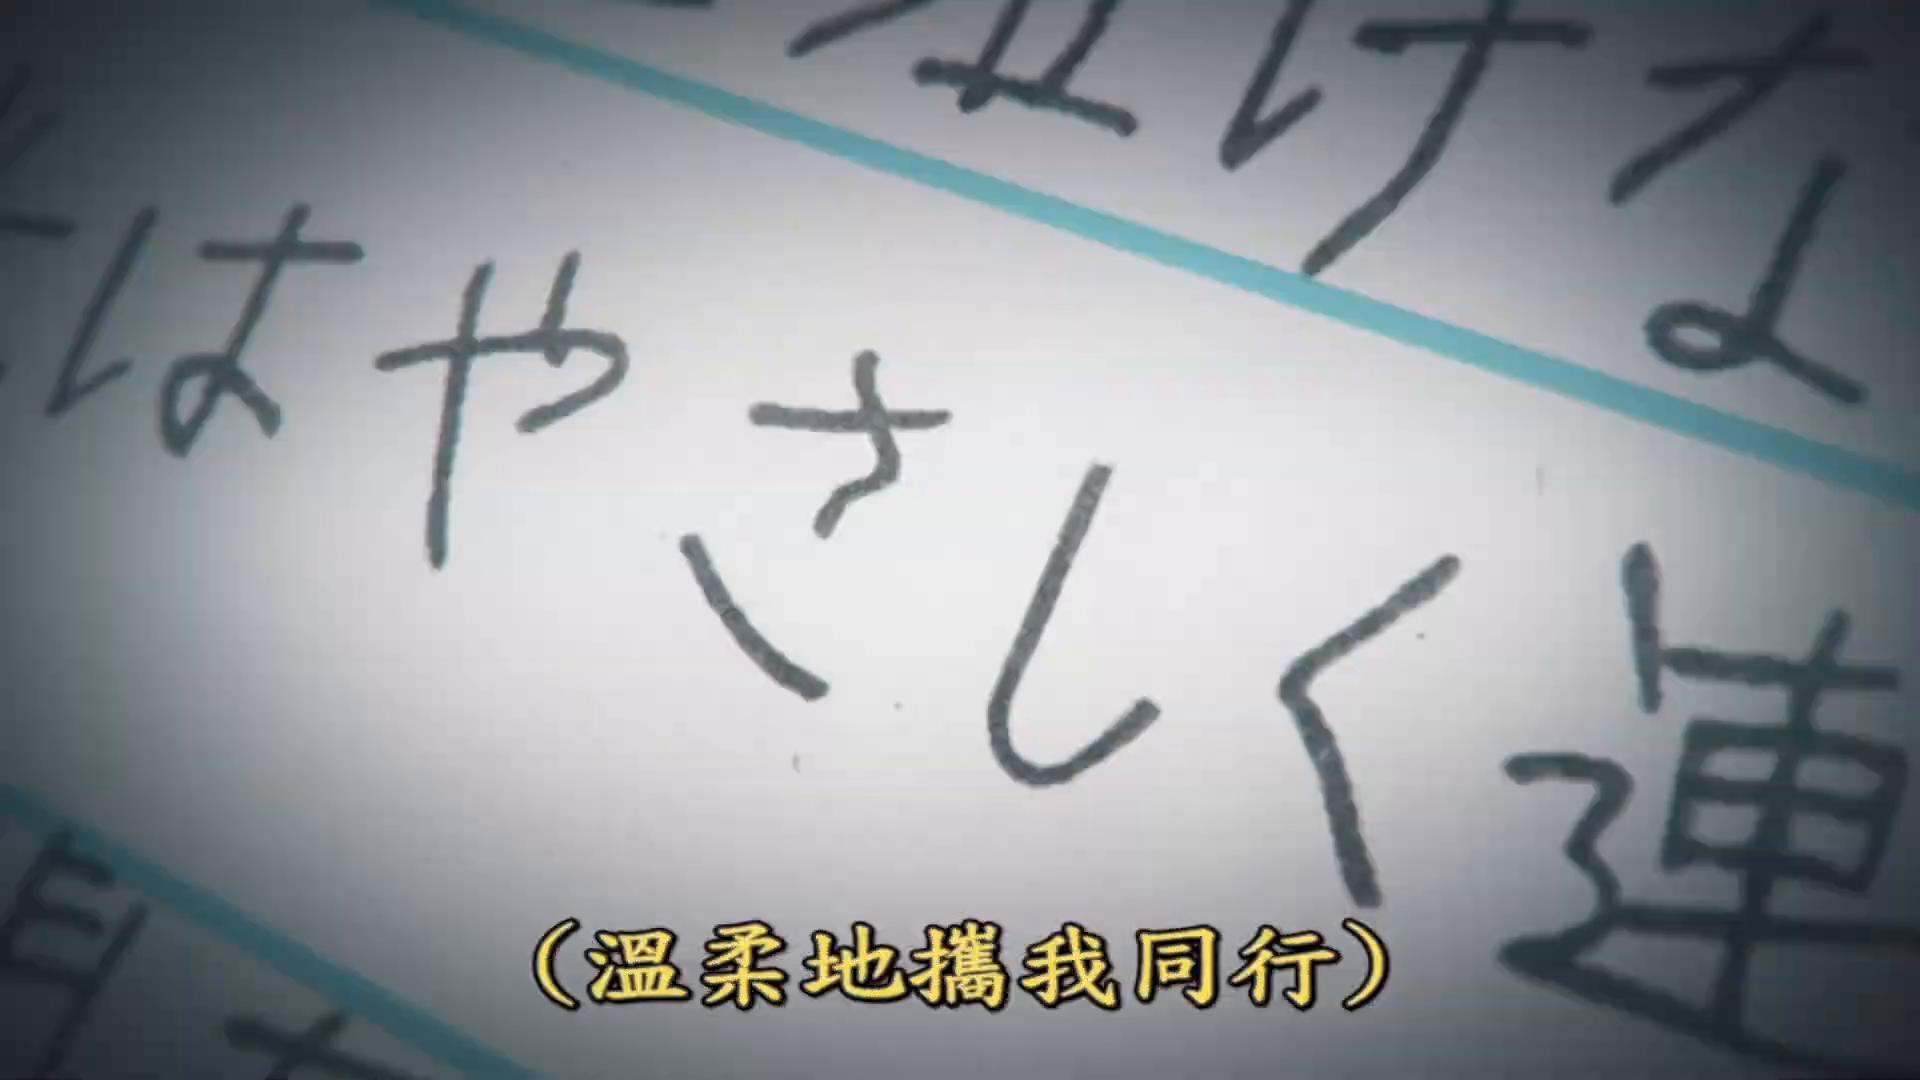 けな
はやさしく連
（溫柔地攜我同行）